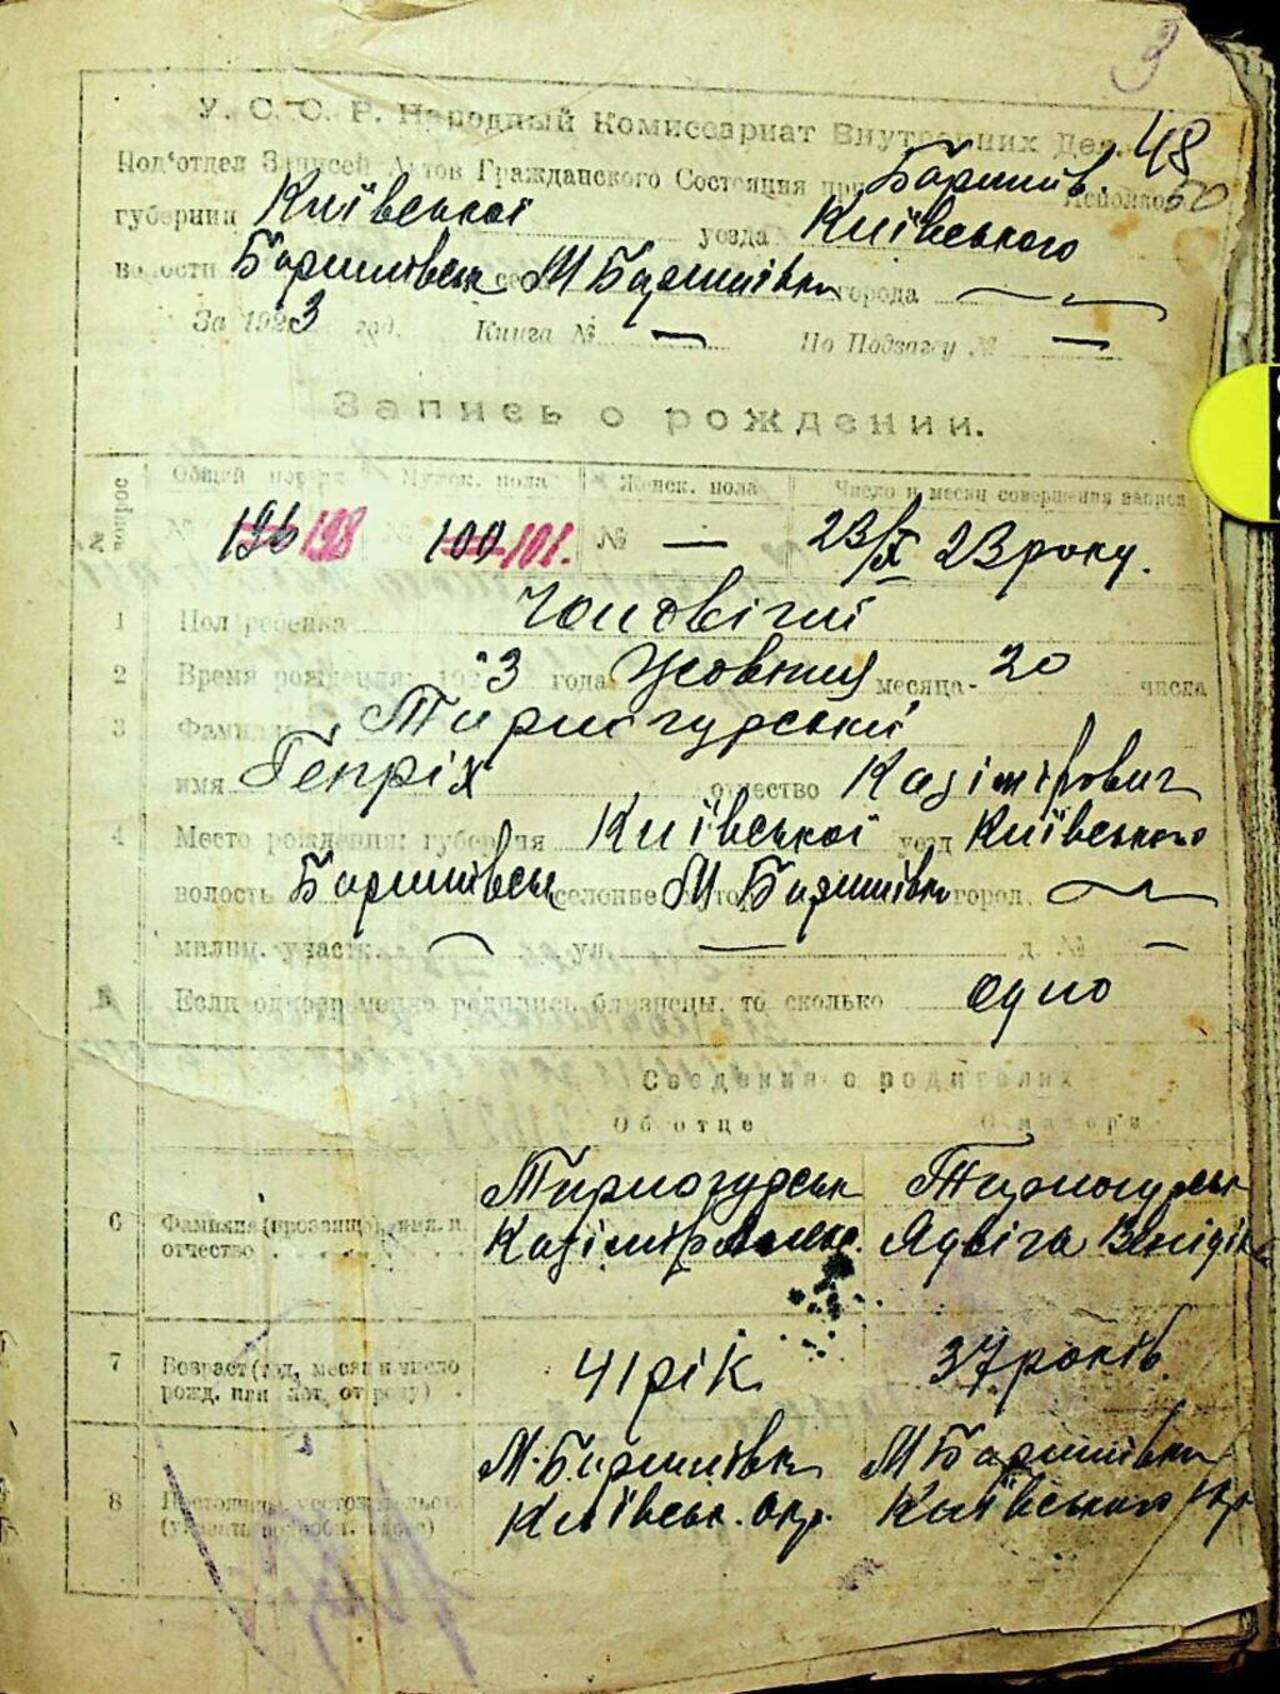 3
У. С. С. Р. Народный Комиссариат Внутренних Дел. 48
Под'отдел Записей Актов Гражданского Состояния при Баришів. Исполком 50
губернии Київської уезда Київського
волости Баришівськ М Баришівки города —
За 1923 год. Книга № — По Подзагсу № —
Запись о рождении.
№ вопрос
Общий порядк Мужск. пола Женск. пола Число и месяц совершения записи
№ 196 198 № 100 101. № — 23/X 23 року.
1 Пол ребенка Чоловічий
2 Время рождения: 1923 года Жовтня месяца 20 числа
3 Фамилия
имя Генріх отчество Казімірович
4 Место рождения: губерния Київської уезд Київського
волость Баришівськ селение М Баришівки город —
милиц. участк. — ул. — д. № —
5 Если одновременно родились близнецы, то сколько одно
Сведения о родителях
Об отце О матери
6 Фамилия (прозвище), имя и
отчество
Казімір Ядвіга
7 Возраст (год, месяц и число
рожд. или лет от роду) 41 рік 37 років
8 Постоянное местожительст.
М. Баришівка М Баришівка
Київськ. окр. Київського окр